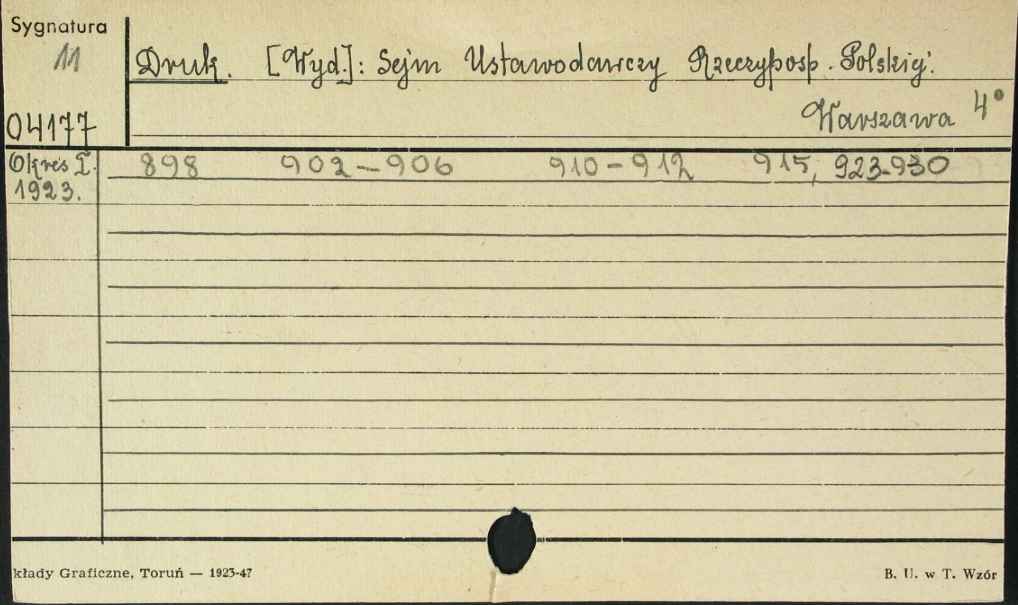 Sygnatura
11
Druk. [Wyd.]: Sejm Ustawodawczy Rzeczyposp. Polskiej.
Warszawa 4°
04177
Okres I. 898 902-906 910-912 915, 923-930
1923.
kłady Graficzne, Toruń — 1923-47
B. U. w T. Wzór